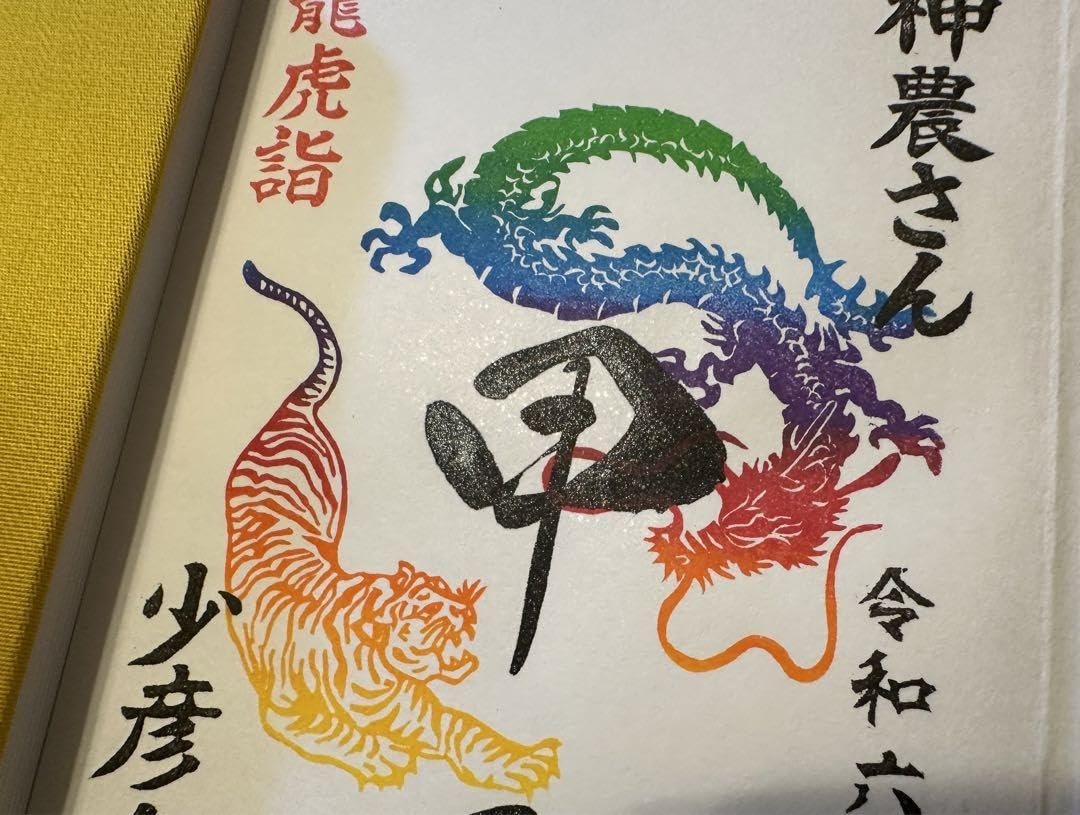 神農さん
令和六
甲
龍虎詣
少彦